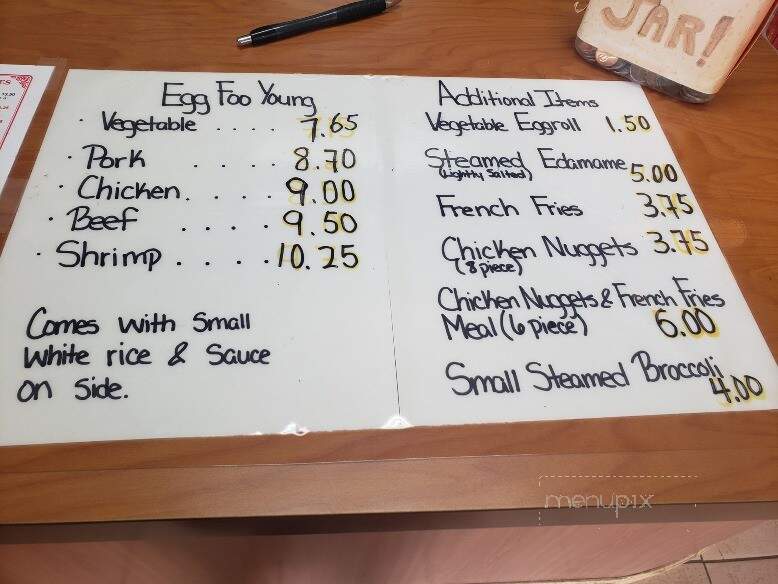 JAR!
Egg Foo Young
· Vegetable .... 7.65
· Pork ..... 8.70
· Chicken..... 9.00
· Beef .... 9.50
· Shrimp .... 10.25
Comes with Small
White rice & Sauce
on Side.
Additional Items
Vegetable Eggroll 1.50
Steamed Edamame 5.00
(Lightly Salted)
French Fries 3.75
Chicken Nuggets 3.75
(8 piece)
Chicken Nuggets & French Fries
Meal (6 piece) 6.00
Small Steamed Broccoli
4.00
menupix